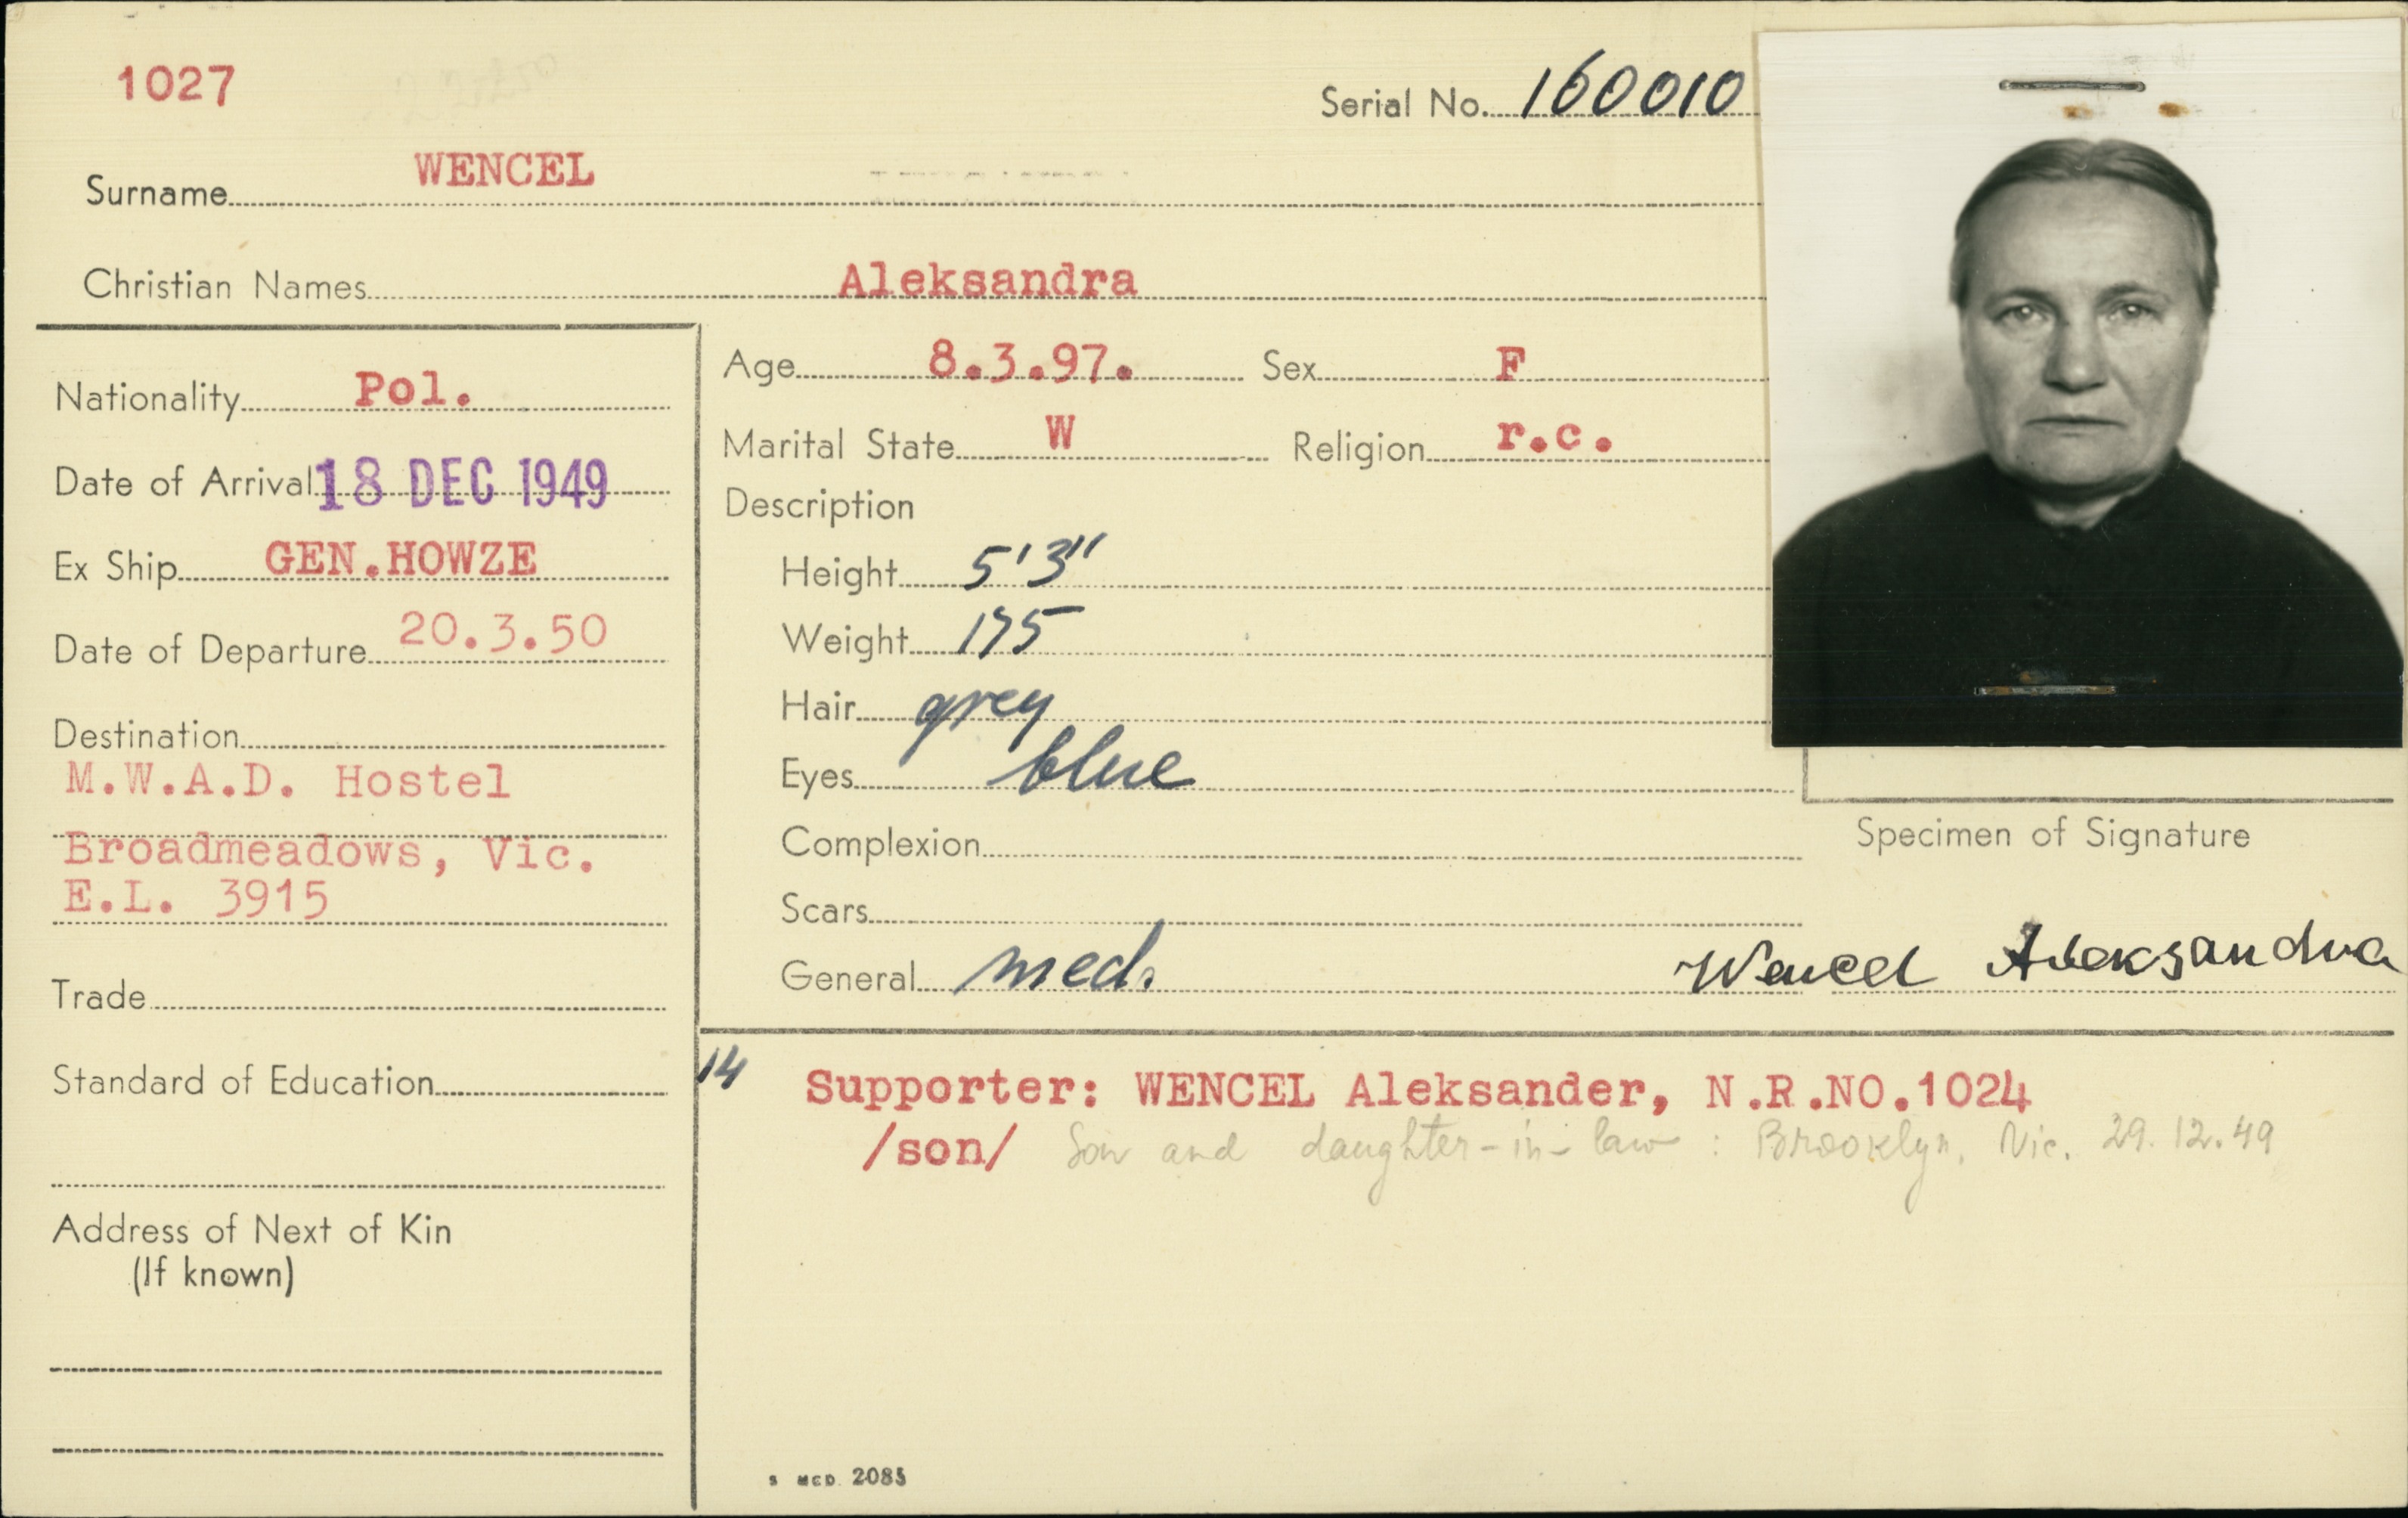 1027
Serial No. 160010
Surname WENCEL
Christian Names Aleksandra
Nationality Pol.
Date of Arrival 18 DEC 1949
Ex Ship GEN.HOWZE
Date of Departure 20.3.50
Destination
M.W.A.D. Hostel
Broadmeadows, Vic.
E.L. 3915
Trade
Standard of Education
Address of Next of Kin
(If known)
Age 8.3.97. Sex F
Marital State W Religion r.c.
Description
Height 5'3"
Weight 175
Hair grey
Eyes blue
Complexion
Scars
General med.
Specimen of Signature
Wencel Aleksandra
14 Supporter: WENCEL Aleksander, N.R.NO.1024
/son/ Son and daughter-in-law : Brooklyn, Vic. 29.12.49
2085